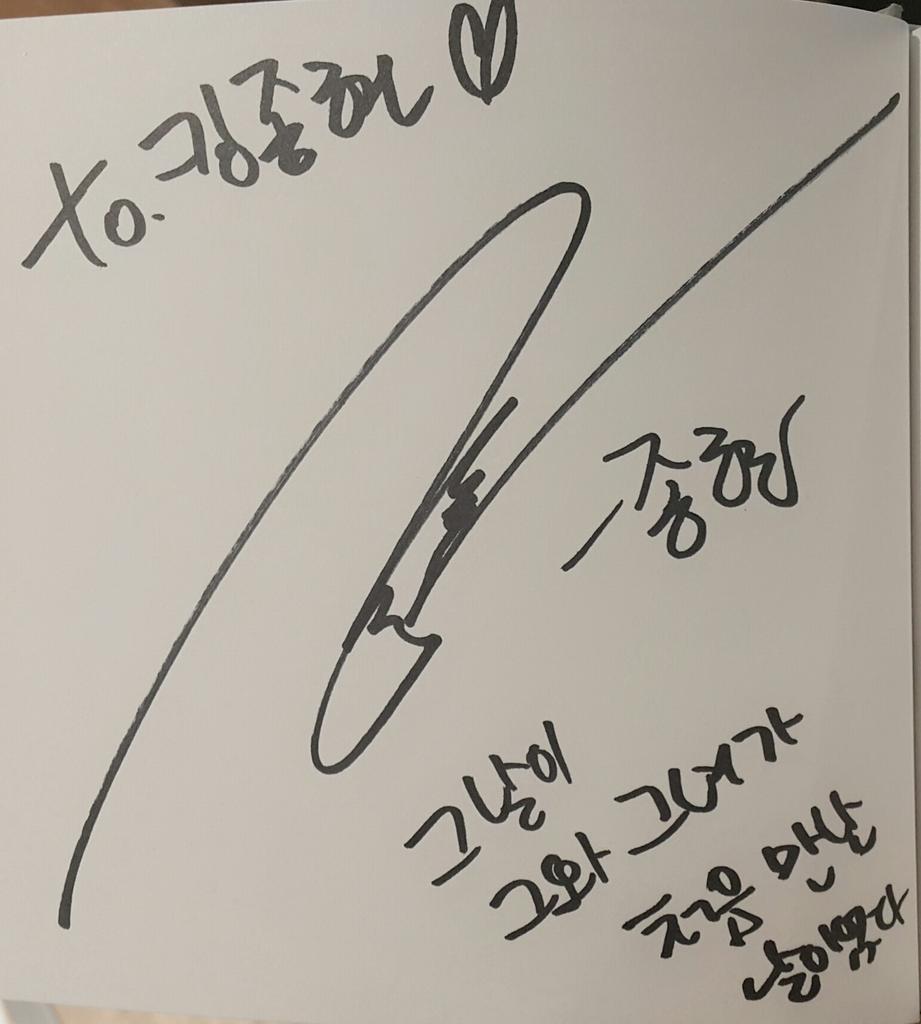 to. 김종현 ♡
-종현
그날이
그와 그녀가
처음 만난
날이였다